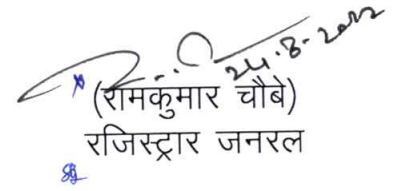 24.8.2022
(रामकुमार चौबे)
रजिस्ट्रार जनरल